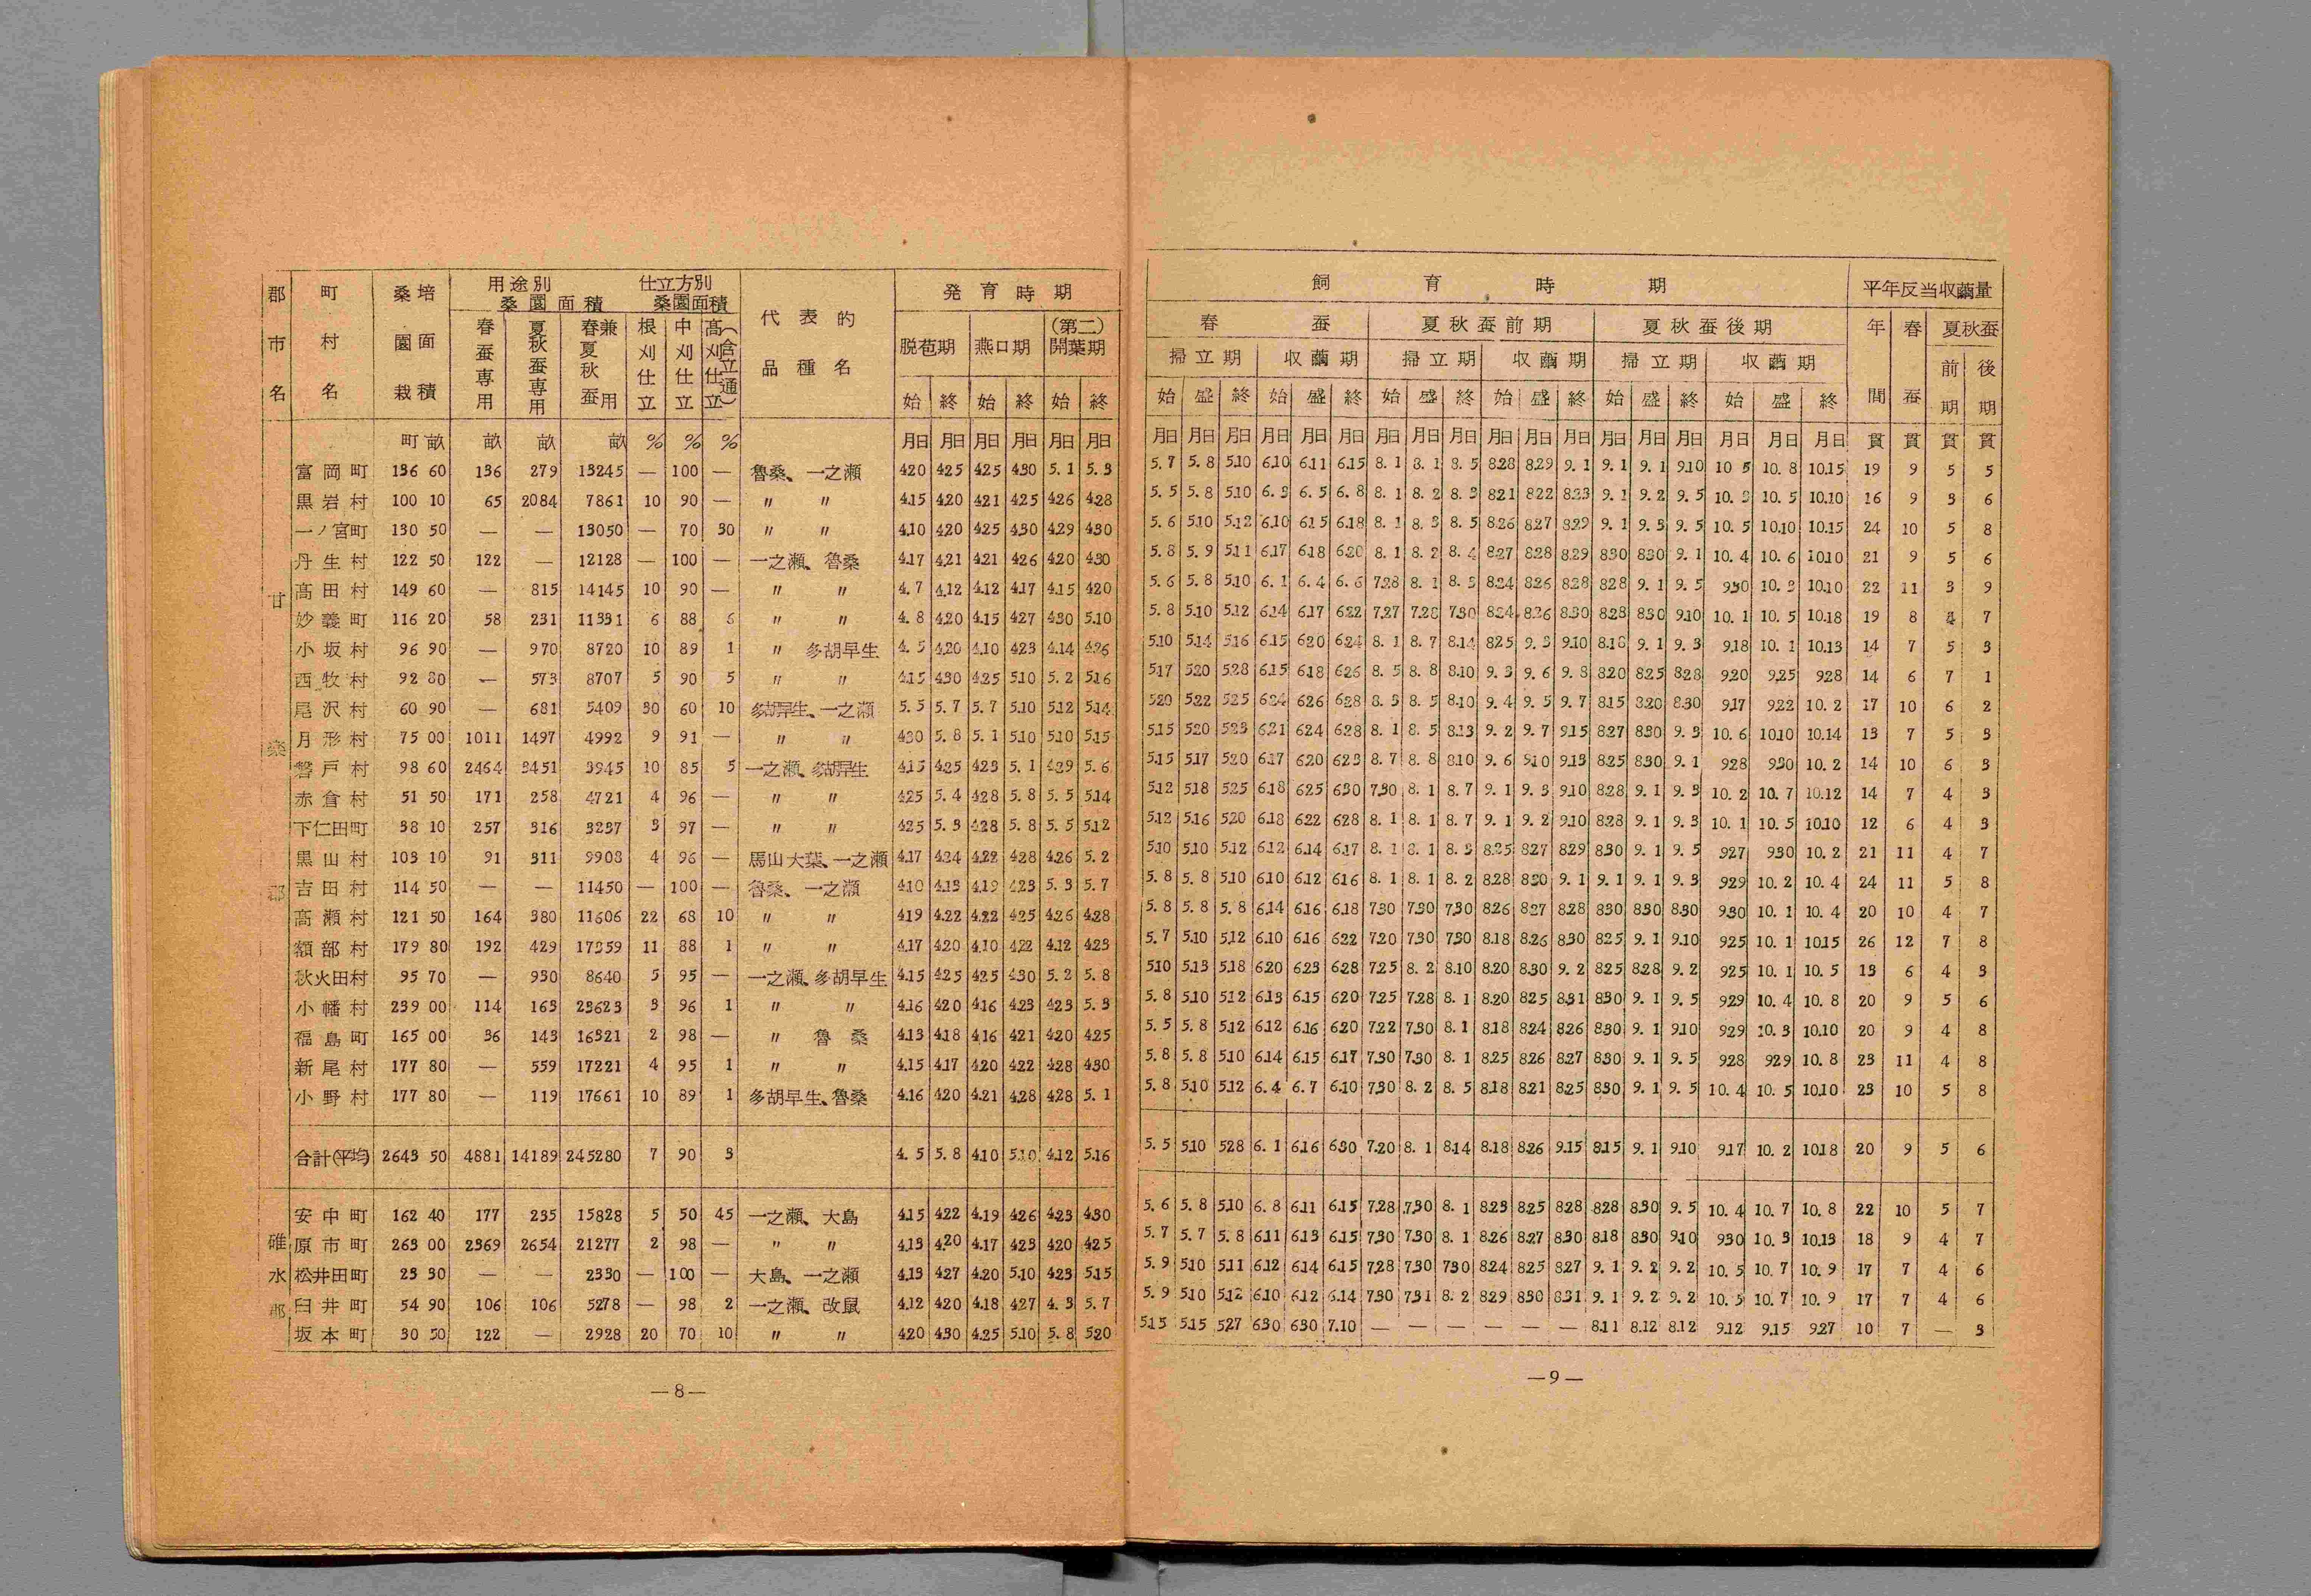 郡市名 町村名 桑園栽培面積 用途別桑園面積 仕立方別桑園面積 代表的品種名 発育時期
春蚕専用 夏秋蚕専用 春夏秋蚕兼用 根刈仕立 中刈仕立 高刈仕立(含立通) 脱苞期 燕口期 (第二)開葉期
始 終 始 終 始 終
町 畝 畝 畝 畝 % % % 月日 月日 月日 月日 月日 月日
甘楽郡
富岡町 136 60 136 279 13245 — 100 — 魯桑、一之瀬 4.20 4.25 4.25 4.30 5.1 5.3
黒岩村 100 10 65 2084 7861 10 90 — 〃 〃 4.15 4.20 4.21 4.25 4.26 4.28
一ノ宮町 130 50 — — 13050 — 70 30 〃 〃 4.10 4.20 4.25 4.30 4.29 4.30
丹生村 122 50 122 — 12128 — 100 — 一之瀬、魯桑 4.17 4.21 4.21 4.26 4.20 4.30
高田村 149 60 — 815 14145 10 90 — 〃 〃 4.7 4.12 4.12 4.17 4.15 4.20
妙義町 116 20 58 231 11331 6 88 6 〃 〃 4.8 4.20 4.15 4.27 4.30 5.10
小坂村 96 90 — 970 8720 10 89 1 〃 多胡早生 4.5 4.20 4.10 4.23 4.14 4.26
西牧村 92 80 — 573 8707 5 90 5 〃 〃 4.15 4.30 4.25 5.10 5.2 5.16
尾沢村 60 90 — 681 5409 30 60 10 多胡早生、一之瀬 5.5 5.7 5.7 5.10 5.12 5.14
月形村 75 00 1011 1497 4992 9 91 — 〃 〃 4.30 5.8 5.1 5.10 5.10 5.15
磐戸村 98 60 2464 3451 3945 10 85 5 一之瀬、多胡早生 4.15 4.25 4.23 5.1 4.29 5.6
赤倉村 51 50 171 258 4721 4 96 — 〃 〃 4.25 5.4 4.28 5.8 5.5 5.14
下仁田町 38 10 257 316 3237 3 97 — 〃 〃 4.25 5.3 4.28 5.8 5.5 5.12
黒山村 103 10 91 311 9908 4 96 — 馬山大葉、一之瀬 4.17 4.24 4.22 4.28 4.26 5.2
吉田村 114 50 — — 11450 — 100 — 魯桑、一之瀬 4.10 4.13 4.19 4.23 5.3 5.7
高瀬村 121 50 164 380 11606 22 68 10 〃 〃 4.19 4.22 4.22 4.25 4.26 4.28
額部村 179 80 192 429 17359 11 88 1 〃 〃 4.17 4.20 4.10 4.22 4.12 4.23
秋火田村 95 70 — 930 8640 5 95 — 一之瀬、多胡早生 4.15 4.25 4.25 4.30 5.2 5.8
小幡村 239 00 114 163 23623 3 96 1 〃 〃 4.16 4.20 4.16 4.23 4.23 5.3
福島町 165 00 36 143 16321 2 98 — 〃 魯桑 4.13 4.18 4.16 4.21 4.20 4.25
新尾村 177 80 — 559 17221 4 95 1 〃 〃 4.15 4.17 4.20 4.22 4.28 4.30
小野村 177 80 — 119 17661 10 89 1 多胡早生、魯桑 4.16 4.20 4.21 4.28 4.28 5.1
合計(平均) 2643 50 4881 14189 245280 7 90 3 4.5 5.8 4.10 5.10 4.12 5.16
碓水郡
安中町 162 40 177 235 15828 5 50 45 一之瀬、大島 4.15 4.22 4.19 4.26 4.23 4.30
原市町 263 00 2369 2654 21277 2 98 — 〃 〃 4.13 4.20 4.17 4.23 4.20 4.25
松井田町 23 30 — — 2330 — 100 — 大島、一之瀬 4.13 4.27 4.20 5.10 4.23 5.15
臼井町 54 90 106 106 5278 — 98 2 一之瀬、改鼠 4.12 4.20 4.18 4.27 4.3 5.7
坂本町 30 50 122 — 2928 20 70 10 〃 〃 4.20 4.30 4.25 5.10 5.8 5.20
—8—
飼育時期 平年反当収繭量
春蚕 夏秋蚕前期 夏秋蚕後期 年間 春蚕 夏秋蚕
掃立期 収繭期 掃立期 収繭期 掃立期 収繭期 前期 後期
始 盛 終 始 盛 終 始 盛 終 始 盛 終 始 盛 終 始 盛 終
月日 月日 月日 月日 月日 月日 月日 月日 月日 月日 月日 月日 月日 月日 月日 月日 月日 月日 貫 貫 貫 貫
5.7 5.8 5.10 6.10 6.11 6.15 8.1 8.1 8.5 8.28 8.29 9.1 9.1 9.1 9.10 10.5 10.8 10.15 19 9 5 5
5.5 5.8 5.10 6.3 6.5 6.8 8.1 8.2 8.3 8.21 8.22 8.23 9.1 9.2 9.5 10.3 10.5 10.10 16 9 3 6
5.6 5.10 5.12 6.10 6.15 6.18 8.1 8.3 8.5 8.26 8.27 8.29 9.1 9.3 9.5 10.5 10.10 10.15 24 10 5 8
5.8 5.9 5.11 6.17 6.18 6.20 8.1 8.2 8.4 8.27 8.28 8.29 8.30 8.30 9.1 10.4 10.6 10.10 21 9 5 6
5.6 5.8 5.10 6.1 6.4 6.6 7.28 8.1 8.5 8.24 8.26 8.28 8.28 9.1 9.5 9.30 10.3 10.10 22 11 3 9
5.8 5.10 5.12 6.14 6.17 6.22 7.27 7.28 7.30 8.24 8.26 8.30 8.28 8.30 9.10 10.1 10.5 10.18 19 8 4 7
5.10 5.14 5.16 6.15 6.20 6.24 8.1 8.7 8.14 8.25 9.3 9.10 8.18 9.1 9.3 9.18 10.1 10.13 14 7 5 3
5.17 5.20 5.28 6.15 6.18 6.26 8.5 8.8 8.10 9.3 9.6 9.8 8.20 8.25 8.28 9.20 9.25 9.28 14 6 7 1
5.20 5.22 5.25 6.24 6.26 6.28 8.3 8.5 8.10 9.4 9.5 9.7 8.15 8.20 8.30 9.17 9.22 10.2 17 10 6 2
5.15 5.20 5.23 6.21 6.24 6.28 8.1 8.5 8.13 9.2 9.7 9.15 8.27 8.30 9.3 10.6 10.10 10.14 13 7 5 3
5.15 5.17 5.20 6.17 6.20 6.23 8.7 8.8 8.10 9.6 9.10 9.13 8.25 8.30 9.1 9.28 9.30 10.2 14 10 6 3
5.12 5.18 5.25 6.18 6.25 6.30 7.30 8.1 8.7 9.1 9.3 9.10 8.28 9.1 9.3 10.2 10.7 10.12 14 7 4 3
5.12 5.16 5.20 6.18 6.22 6.28 8.1 8.1 8.7 9.1 9.2 9.10 8.28 9.1 9.3 10.1 10.5 10.10 12 6 4 3
5.10 5.10 5.12 6.12 6.14 6.17 8.1 8.1 8.3 8.25 8.27 8.29 8.30 9.1 9.5 9.27 9.30 10.2 21 11 4 7
5.8 5.8 5.10 6.10 6.12 6.16 8.1 8.1 8.2 8.28 8.30 9.1 9.1 9.1 9.3 9.29 10.2 10.4 24 11 5 8
5.8 5.8 5.8 6.14 6.16 6.18 7.30 7.30 7.30 8.26 8.27 8.28 8.30 8.30 8.30 9.30 10.1 10.4 20 10 4 7
5.7 5.10 5.12 6.10 6.16 6.22 7.20 7.30 7.30 8.18 8.26 8.30 8.25 9.1 9.10 9.25 10.1 10.15 26 12 7 8
5.10 5.13 5.18 6.20 6.23 6.28 7.25 8.2 8.10 8.20 8.30 9.2 8.25 8.28 9.2 9.25 10.1 10.5 13 6 4 3
5.8 5.10 5.12 6.13 6.15 6.20 7.25 7.28 8.1 8.20 8.25 8.31 8.30 9.1 9.5 9.29 10.4 10.8 20 9 5 6
5.5 5.8 5.12 6.12 6.16 6.20 7.22 7.30 8.1 8.18 8.24 8.26 8.30 9.1 9.10 9.29 10.3 10.10 20 9 4 8
5.8 5.8 5.10 6.14 6.15 6.17 7.30 7.30 8.1 8.25 8.26 8.27 8.30 9.1 9.5 9.28 9.29 10.8 23 11 4 8
5.8 5.10 5.12 6.4 6.7 6.10 7.30 8.2 8.5 8.18 8.21 8.25 8.30 9.1 9.5 10.4 10.5 10.10 23 10 5 8
5.5 5.10 5.28 6.1 6.16 6.30 7.20 8.1 8.14 8.18 8.26 9.15 8.15 9.1 9.10 9.17 10.2 10.18 20 9 5 6
5.6 5.8 5.10 6.8 6.11 6.15 7.28 7.30 8.1 8.23 8.25 8.28 8.28 8.30 9.5 10.4 10.7 10.8 22 10 5 7
5.7 5.7 5.8 6.11 6.13 6.15 7.30 7.30 8.1 8.26 8.27 8.30 8.18 8.30 9.10 9.30 10.3 10.13 18 9 4 7
5.9 5.10 5.11 6.12 6.14 6.15 7.28 7.30 7.30 8.24 8.25 8.27 9.1 9.2 9.2 10.5 10.7 10.9 17 7 4 6
5.9 5.10 5.12 6.10 6.12 6.14 7.30 7.31 8.2 8.29 8.30 8.31 9.1 9.2 9.2 10.5 10.7 10.9 17 7 4 6
5.15 5.15 5.27 6.30 6.30 7.10 — — — — — — 8.11 8.12 8.12 9.12 9.15 9.27 10 7 — 3
—9—